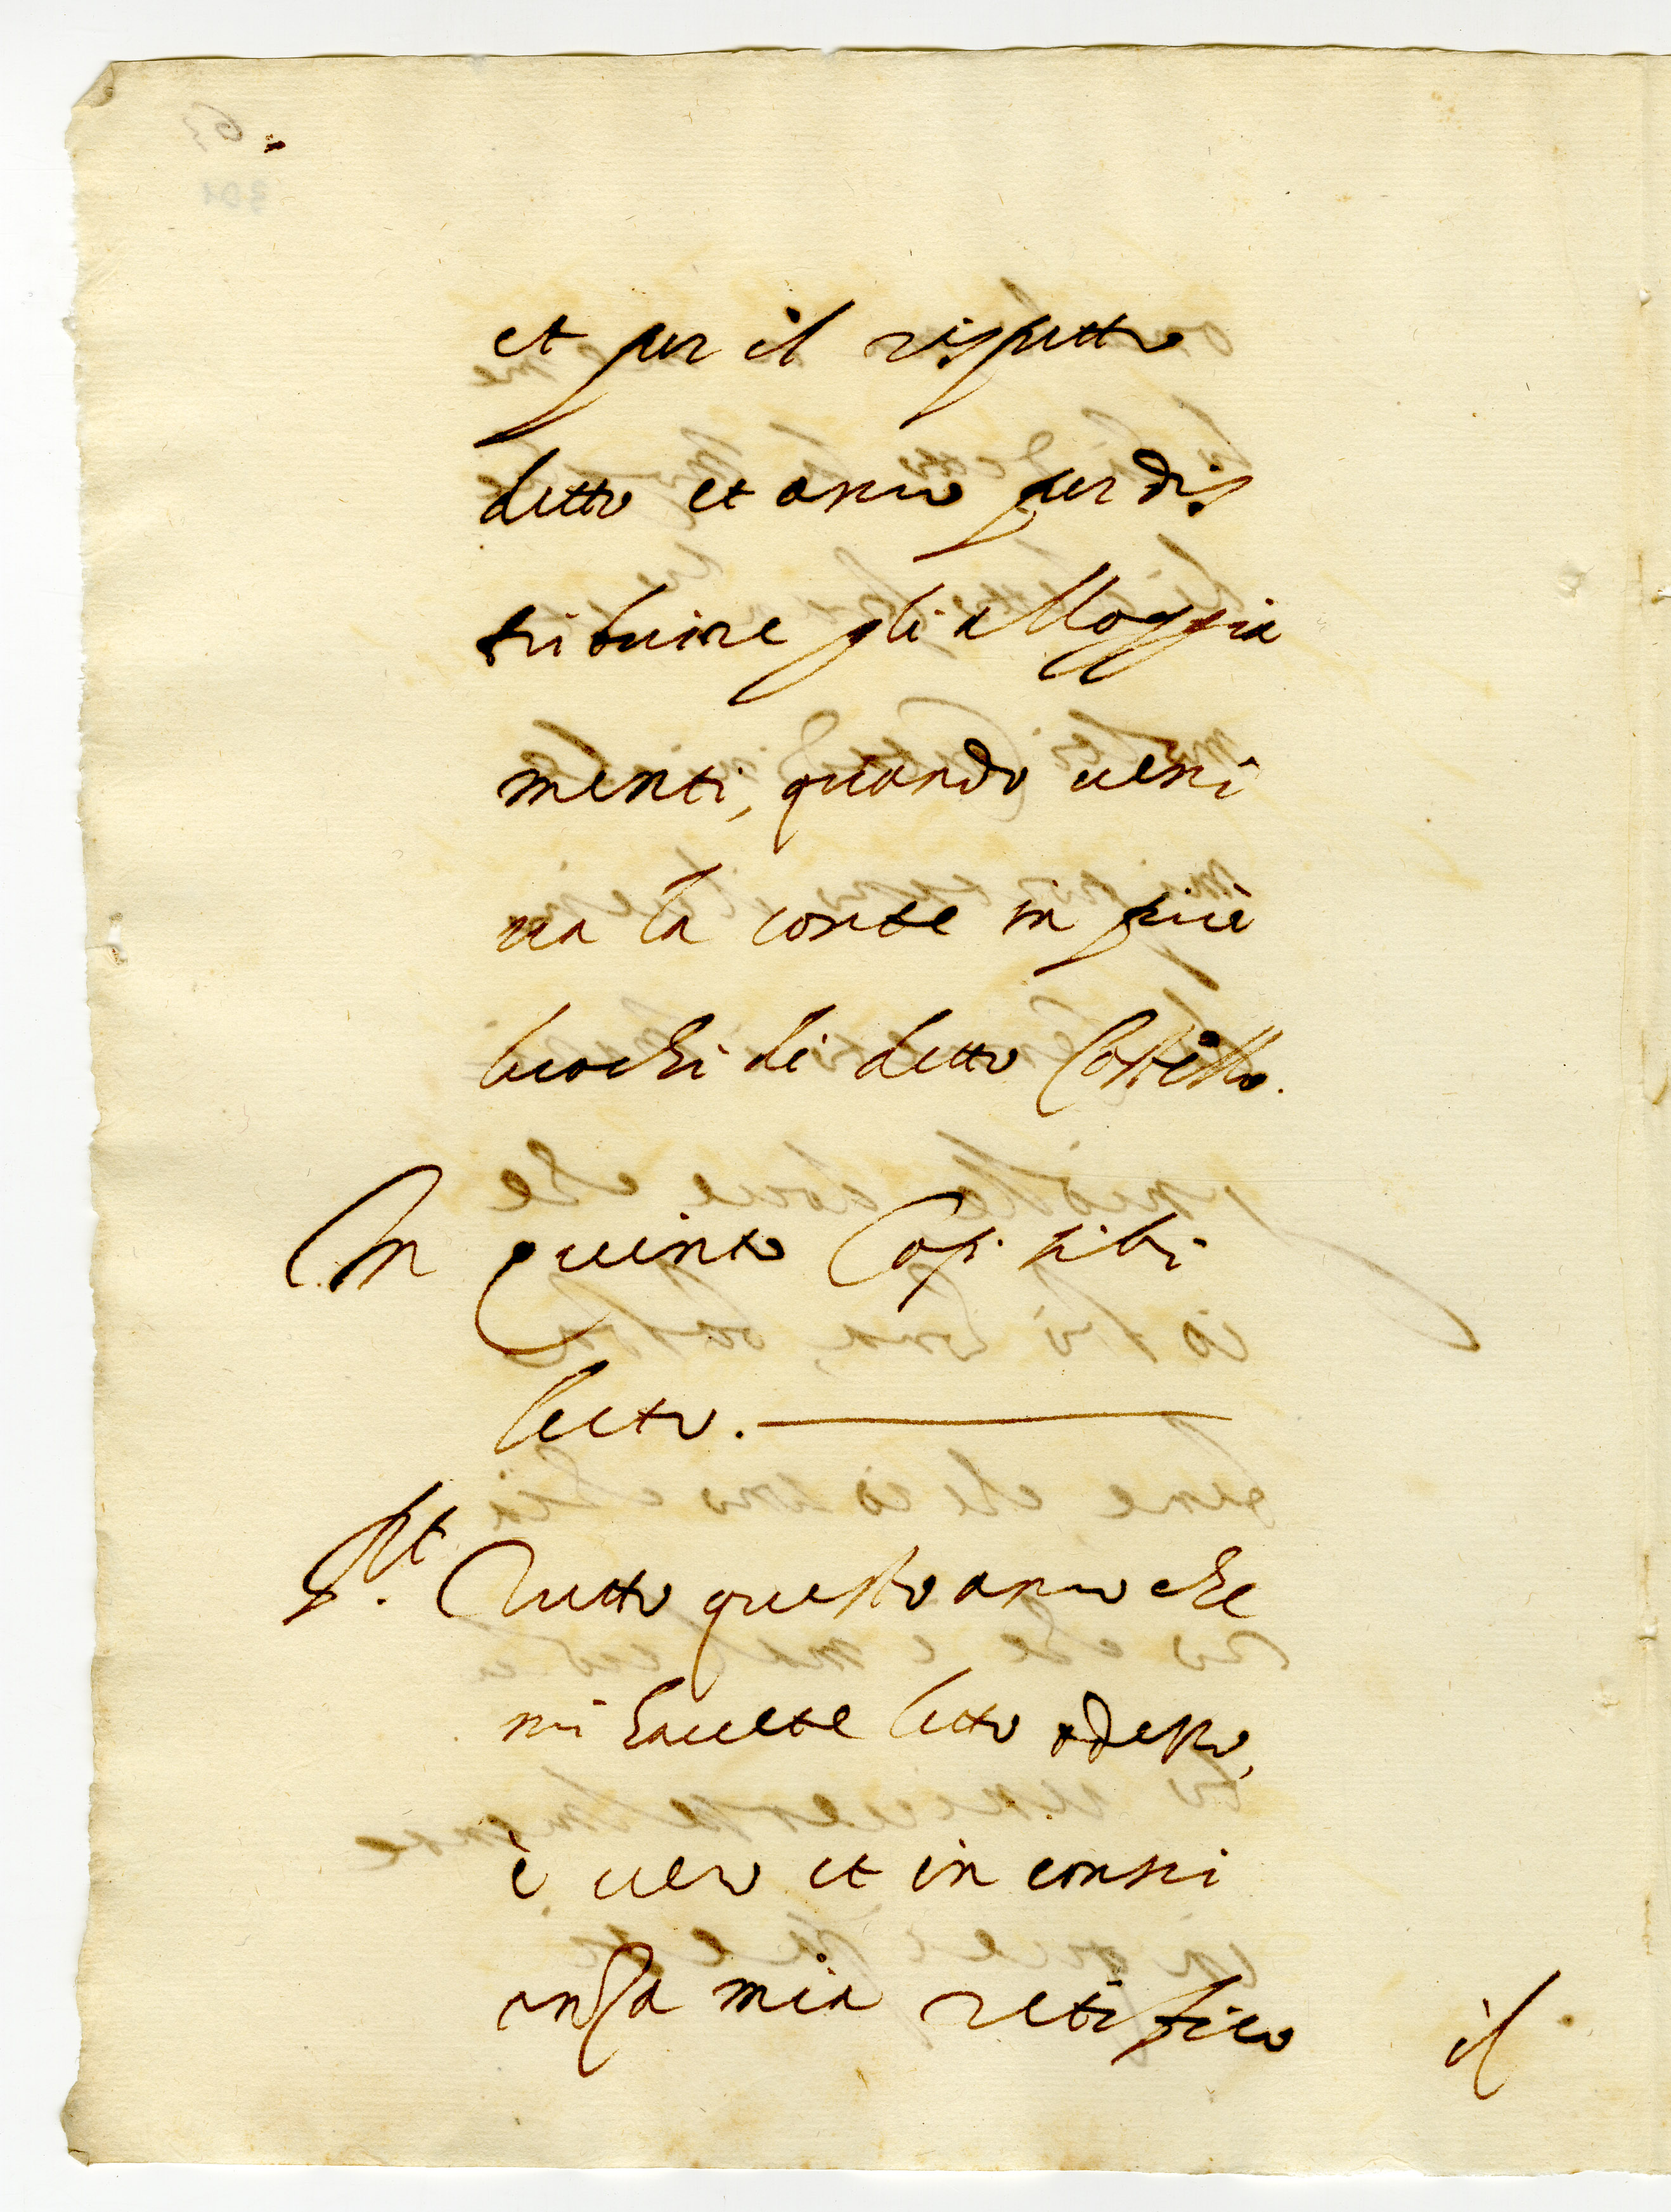 et per il rispetto
detto et anco per dis
tribuire gli alloggia
menti, quando veni
va la corte in più
luochi di detto Castello.
In quinto Cap. sibi
lecto.
Rt. Tutto questo anco che
mi havete letto adesso,
è vero et in consci
enza mia retifico
il